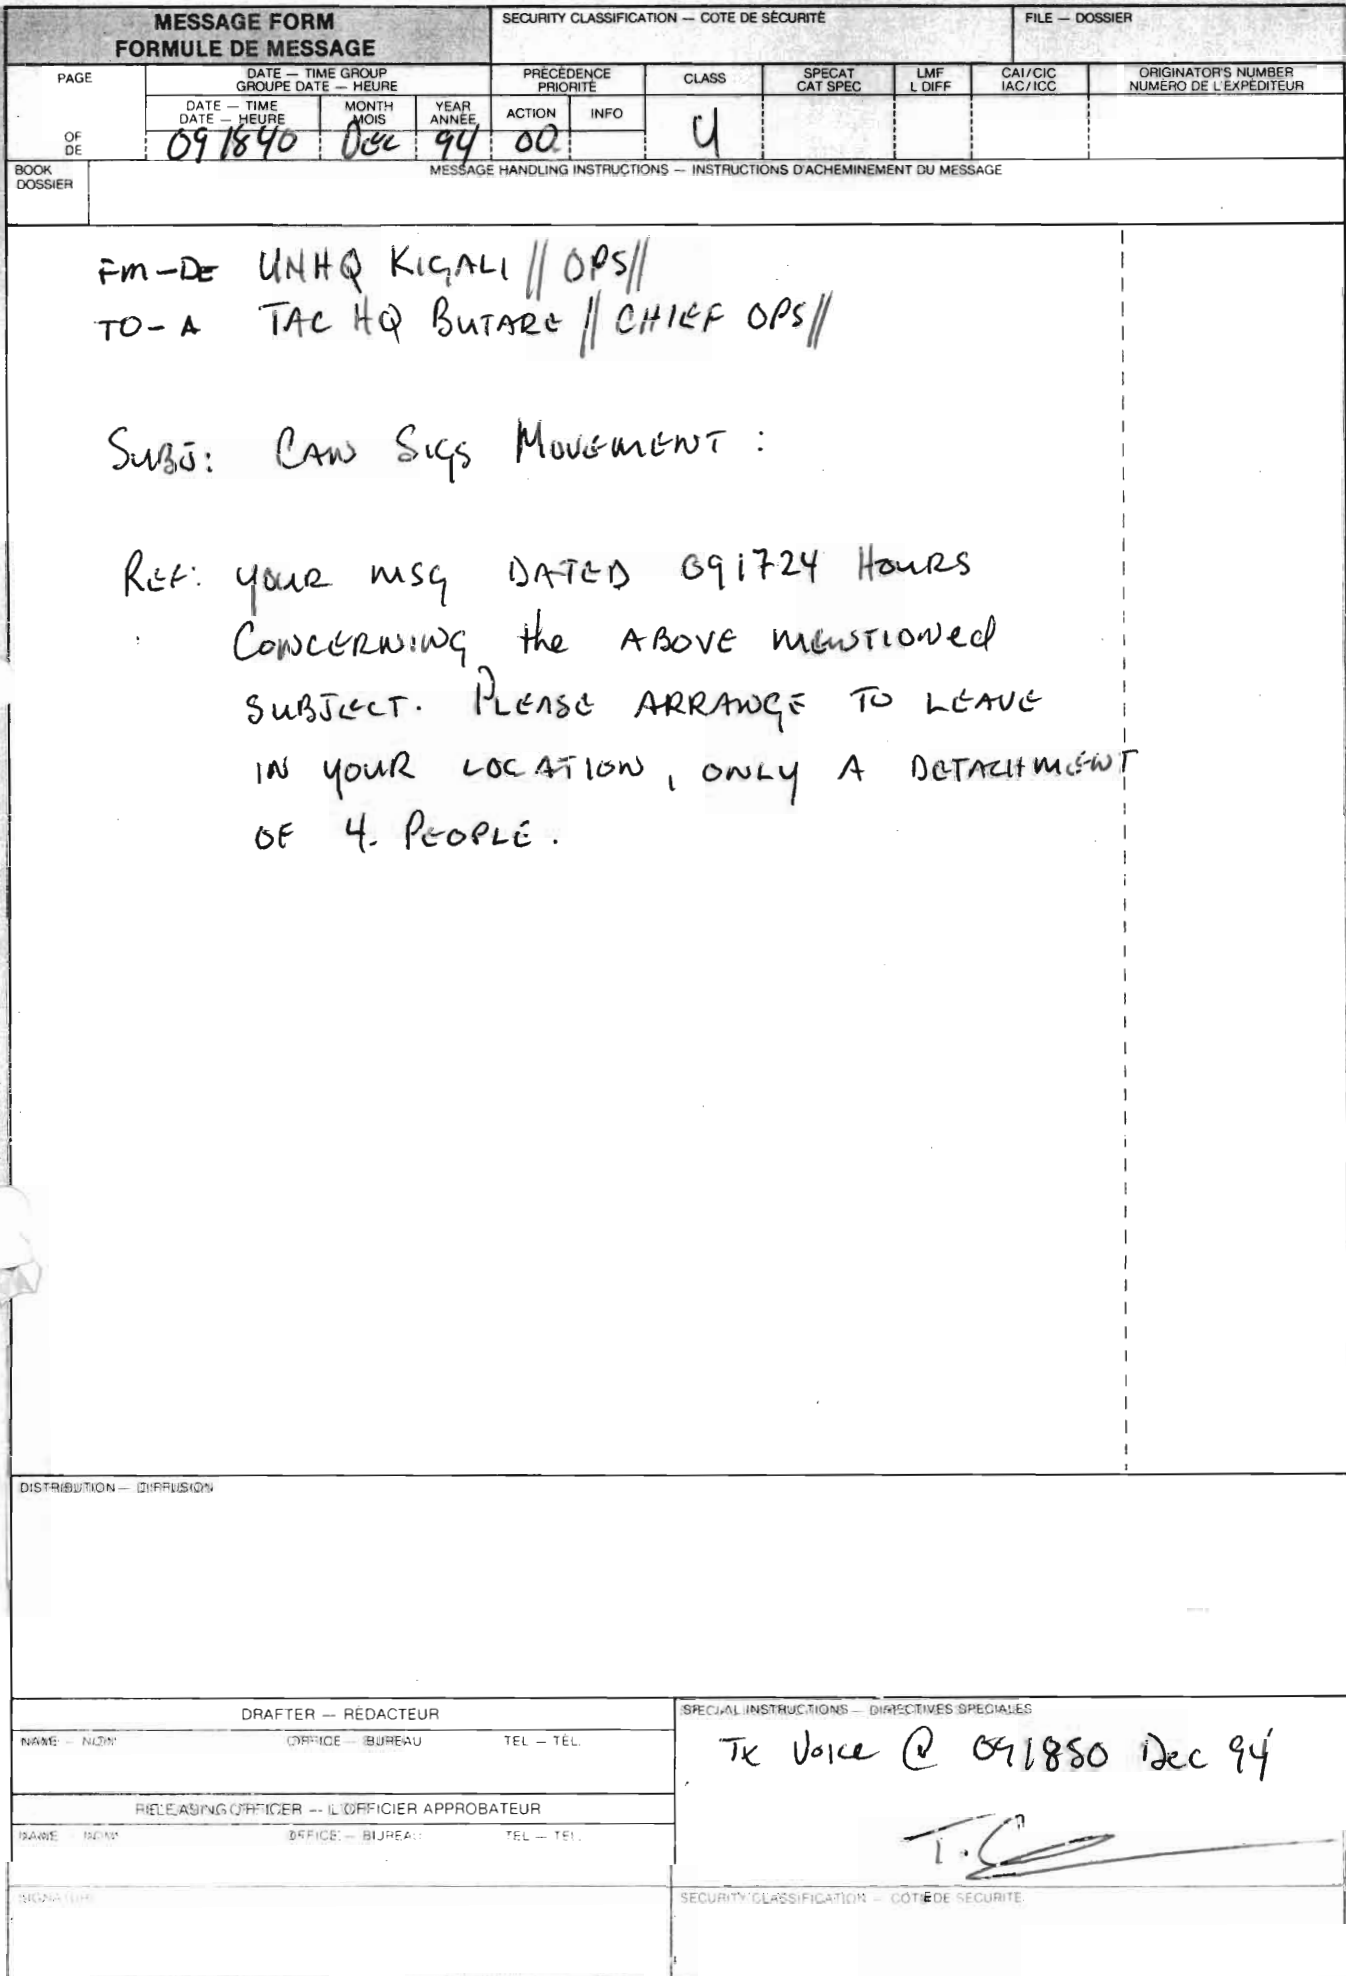 MESSAGE FORM
FORMULE DE MESSAGE
SECURITY CLASSIFICATION — COTE DE SÉCURITÉ
FILE — DOSSIER
PAGE
OF
DE
DATE — TIME GROUP
GROUPE DATE — HEURE
DATE — TIME
DATE — HEURE
MONTH
MOIS
YEAR
ANNÉE
PRÉCÉDENCE
PRIORITÉ
ACTION
INFO
CLASS
SPECAT
CAT SPEC
LMF
L DIFF
CAI/CIC
IAC/ICC
ORIGINATOR'S NUMBER
NUMÉRO DE L'EXPÉDITEUR
091840 Dec 94 OO U
BOOK
DOSSIER
MESSAGE HANDLING INSTRUCTIONS — INSTRUCTIONS D'ACHEMINEMENT DU MESSAGE
FM-DE UNHQ KIGALI // OPS//
TO-A TAC HQ BUTARE // CHIEF OPS//
SUBJ: CAN SIGS MOVEMENT :
REF: YOUR MSG DATED 091724 HOURS
CONCERNING the ABOVE MENTIONed
SUBJECT. PLEASE ARRANGE TO LEAVE
IN YOUR LOCATION, ONLY A DETACHMENT
OF 4. PEOPLE.
DISTRIBUTION — DIFFUSION
DRAFTER — RÉDACTEUR
NAME — NOM
OFFICE — BUREAU
TEL — TÉL.
RELEASING OFFICER — L'OFFICIER APPROBATEUR
NAME — NOM
OFFICE — BUREAU
TEL — TÉL.
SIGNATURE
SPECIAL INSTRUCTIONS — DIRECTIVES SPECIALES
Tx Voice @ 091850 Dec 94
SECURITY CLASSIFICATION — COTE DE SÉCURITÉ